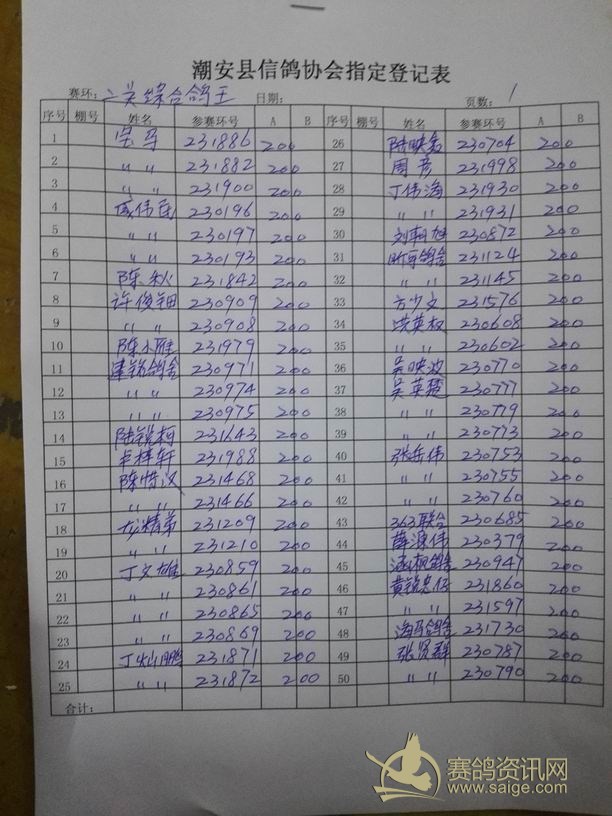 潮安县信鸽协会指定登记表
赛环: 二关综合鸽王 日期: 页数: 1
序号 棚号 姓名 参赛环号 A B 序号 棚号 姓名 参赛环号 A B
1 宝马 231886 200 26 陆映 230704 200
2 〃 〃 231882 200 27 周彦 231998 200
3 〃 〃 231900 200 28 丁伟海 231930 200
4 伟民 230196 200 29 〃 〃 231931 200
5 〃 〃 230197 200 30 刘朝旭 230872 200
6 〃 〃 230193 200 31 鸽舍 231124 200
7 陈秋 231842 200 32 〃 〃 231145 200
8 许俊钿 230909 200 33 方少文 231576 200
9 〃 〃 230908 200 34 洪英权 230608 200
10 陈小雁 231979 200 35 〃 〃 230602 200
11 建铭鸽舍 230971 200 36 吴映波 230770 200
12 〃 〃 230974 200 37 吴英楚 230777 200
13 〃 〃 230975 200 38 〃 〃 230779 200
14 陆锐柯 231643 200 39 〃 〃 230773 200
15 轩 231988 200 40 张岳伟 230753 200
16 陈惜汝 231468 200 41 〃 〃 230755 200
17 〃 〃 231466 200 42 〃 〃 230760 200
18 精弟 231209 200 43 363联合 230685 200
19 〃 〃 231210 200 44 薛源伟 230379 200
20 丁文雄 230859 200 45 涵枫鸽舍 230947 200
21 〃 〃 230861 200 46 黄锐 231860 200
22 〃 〃 230865 200 47 〃 〃 231597 200
23 〃 〃 230869 200 48 海马鸽舍 231730 200
24 丁灿鹏 231871 200 49 张贤群 230787 200
25 〃 〃 231872 200 50 〃 〃 230790 200
合计:
赛鸽资讯网
www.saige.com